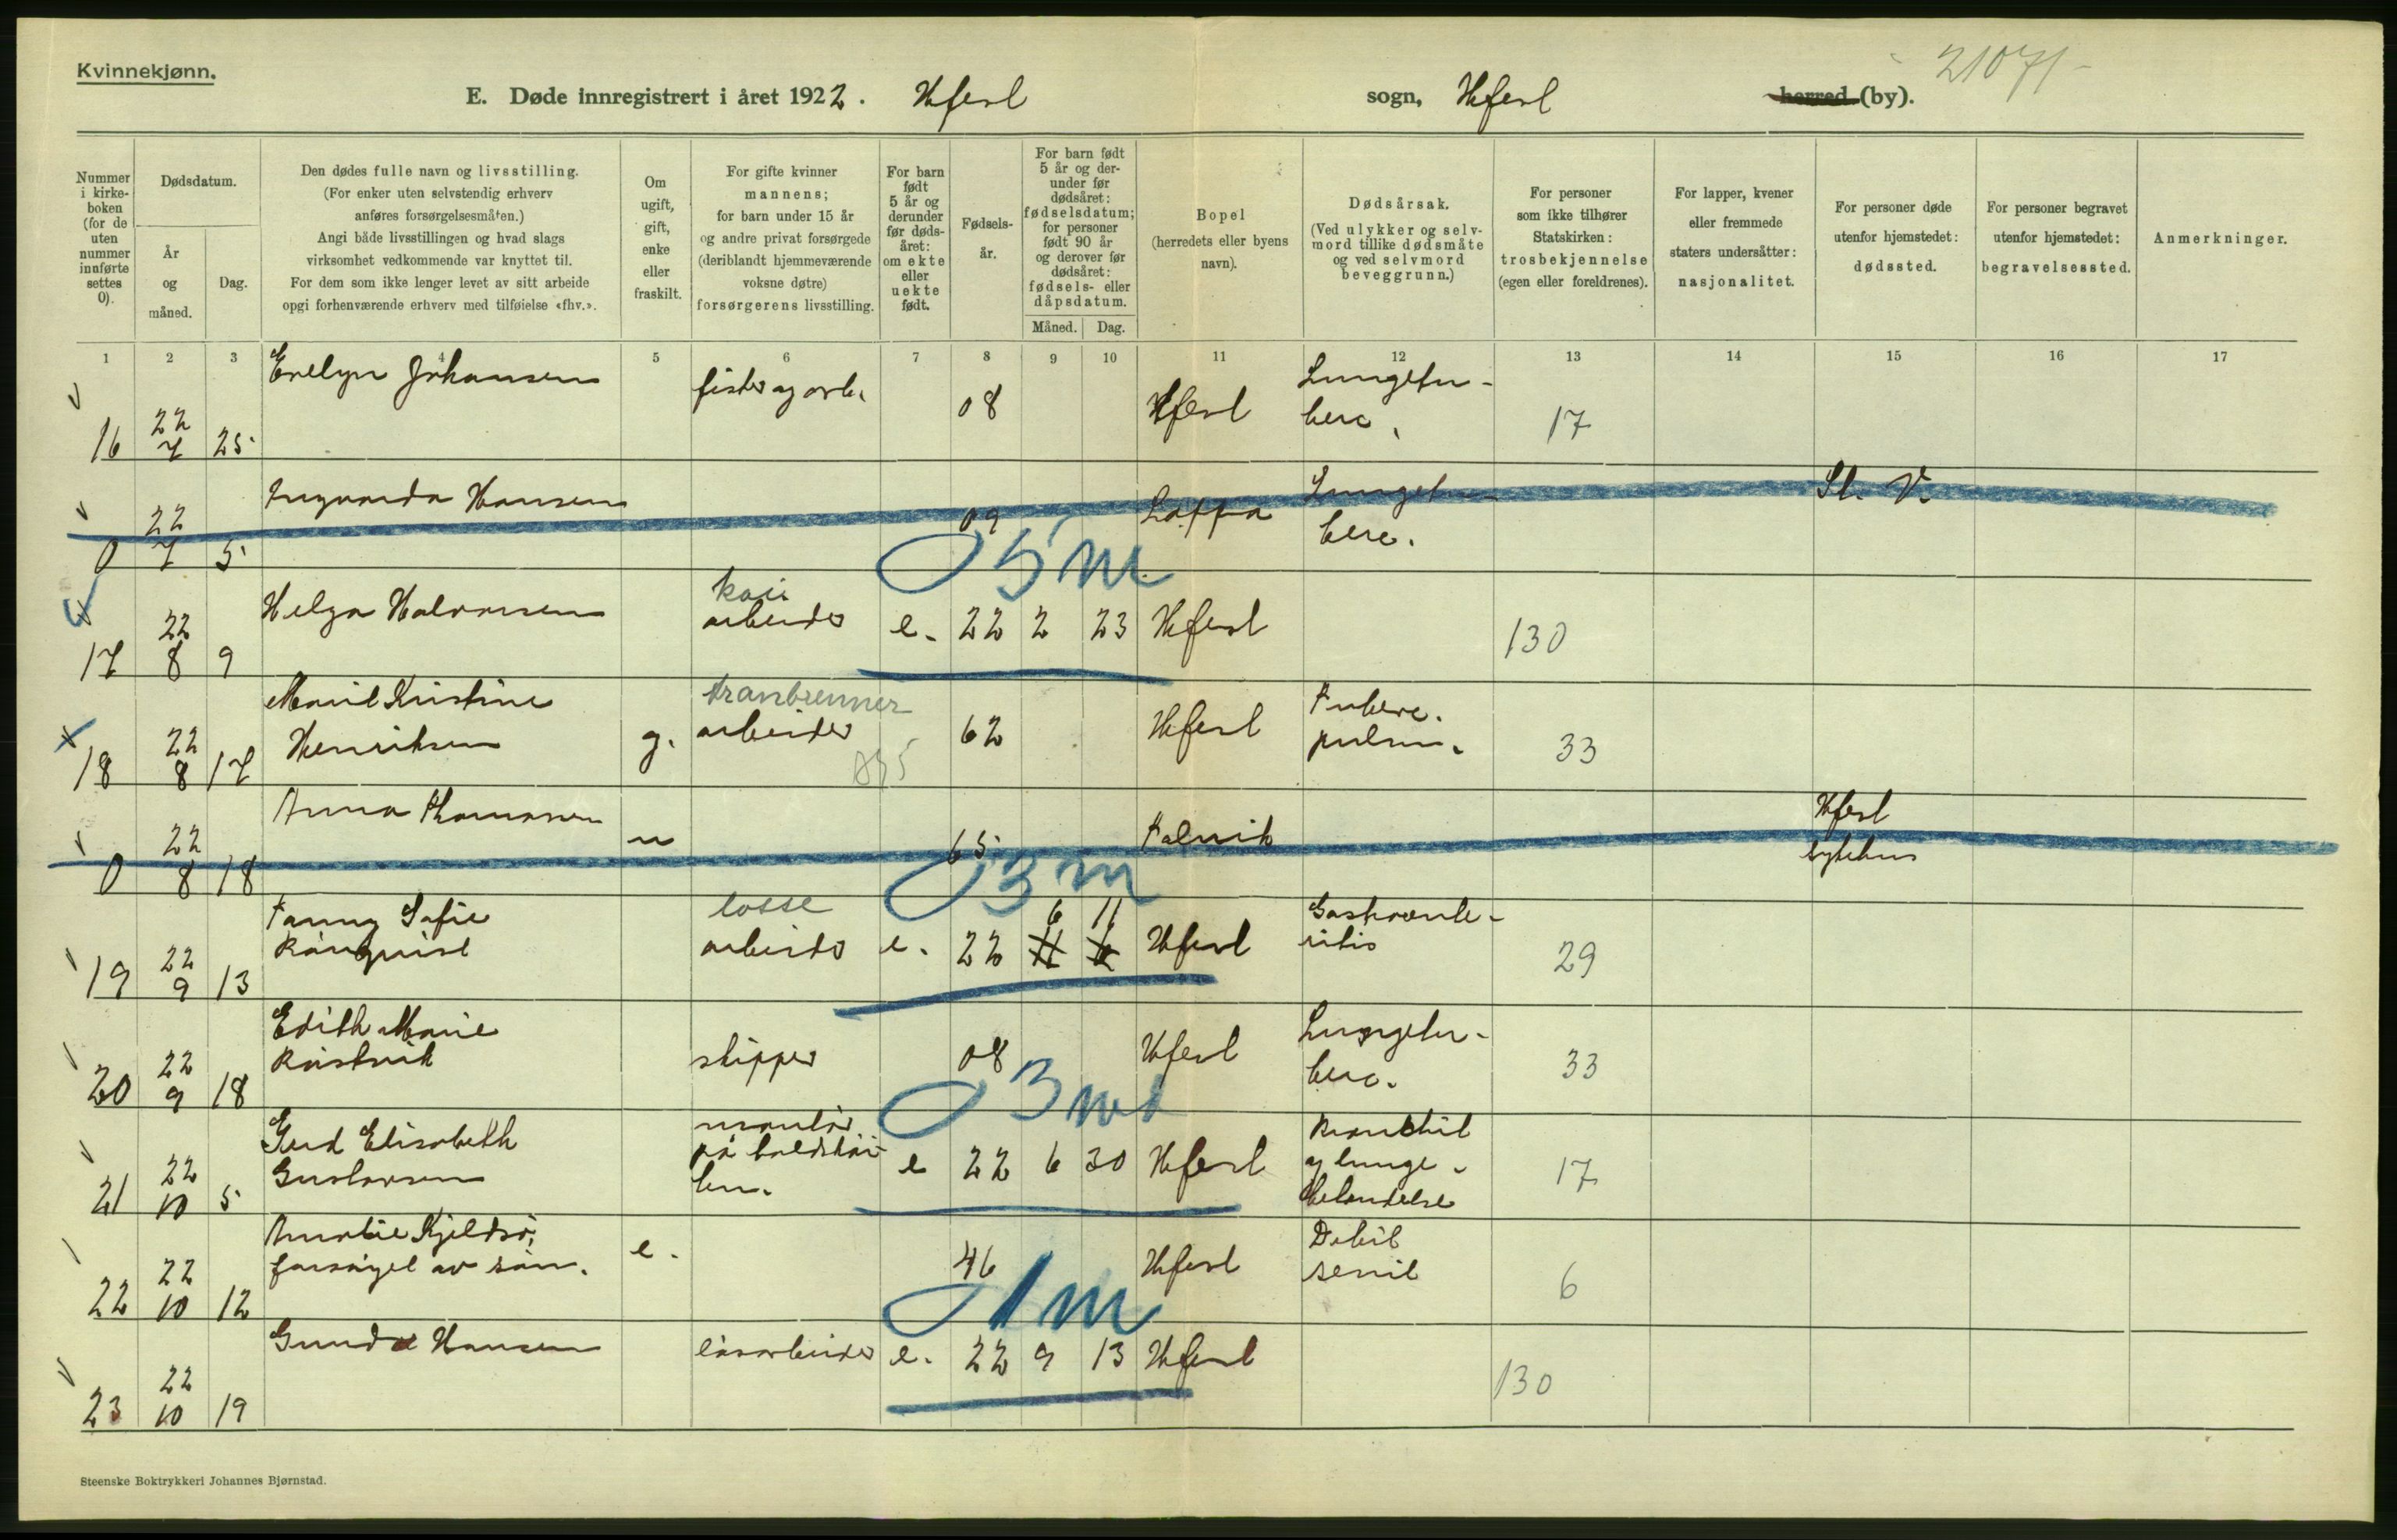 Kvinnekjønn.
21071-
E. Døde innregistrert i året 1922. Hfest sogn, Hfest herred (by).
Nummer i kirke-boken (for de uten nummer innførte settes 0).
Dødsdatum.
År og måned.
Dag.
Den dødes fulle navn og livsstilling.
(For enker uten selvstendig erhverv
anføres forsørgelsesmåten.)
Angi både livsstillingen og hvad slags
virksomhet vedkommende var knyttet til.
For dem som ikke lenger levet av sitt arbeide
opgi forhenværende erhverv med tilføielse «fhv.».
Om ugift, gift, enke eller fraskilt.
For gifte kvinner
mannens;
for barn under 15 år
og andre privat forsørgede
(deriblandt hjemmeværende
voksne døtre)
forsørgerens livsstilling.
For barn født 5 år og derunder før døds-året: om ekte eller uekte født.
Fødsels-år.
For barn født 5 år og der-under før dødsåret: fødselsdatum; for personer født 90 år og derover før dødsåret: fødsels- eller dåpsdatum.
Måned. Dag.
Bopel
(herredets eller byens
navn).
Dødsårsak.
(Ved ulykker og selv-
mord tillike dødsmåte
og ved selvmord
beveggrunn.)
For personer
som ikke tilhører
Statskirken:
trosbekjennelse
(egen eller foreldrenes).
For lapper, kvener
eller fremmede
staters undersåtter:
nasjonalitet.
For personer døde
utenfor hjemstedet:
dødssted.
For personer begravet
utenfor hjemstedet:
begravelsessted.
Anmerkninger.
1 2 3 4 5 6 7 8 9 10 11 12 13 14 15 16 17
16 22 7 25 Evelyn Johansen fisker og arb. 08 Hfest Lungetu-
berc. 17
0 22 7 5 Ingvarda Hansen 09 Loppa Lungetu-
berc. St. V.
5 m
17 22 8 9 Helga Halvorsen kai
arbeider e. 22 2 23 Hfest 130
18 22 8 17 Marie Kristine
Henriksen g. tranbrenner
arbeider 62 Hfest Tuberc.
pulm. 33
0 22 8 18 Anna Thomassen u 65 Talvik Hfest
sykehus
3 m
19 22 9 13 Fanny Sofie
Rönquist losse
arbeider e. 22 6 11 Hfest Gastroente-
ritis 29
20 22 9 18 Edith Marie
skipper 08 Hfest Lungetu-
berc. 33
3
21 22 10 5 Gerd Elisabeth
Gustavsen montör
e 22 6 30 Hfest
og lunge-
betendelse 17
22 22 10 12 Amalie Kjeldsö,
forsörget av sön. e. 46 Hfest Debil
senil 6
1 m
23 22 10 19 Gunda Hansen lösarbeider e. 22 9 13 Hfest 130
Steenske Boktrykkeri Johannes Bjørnstad.